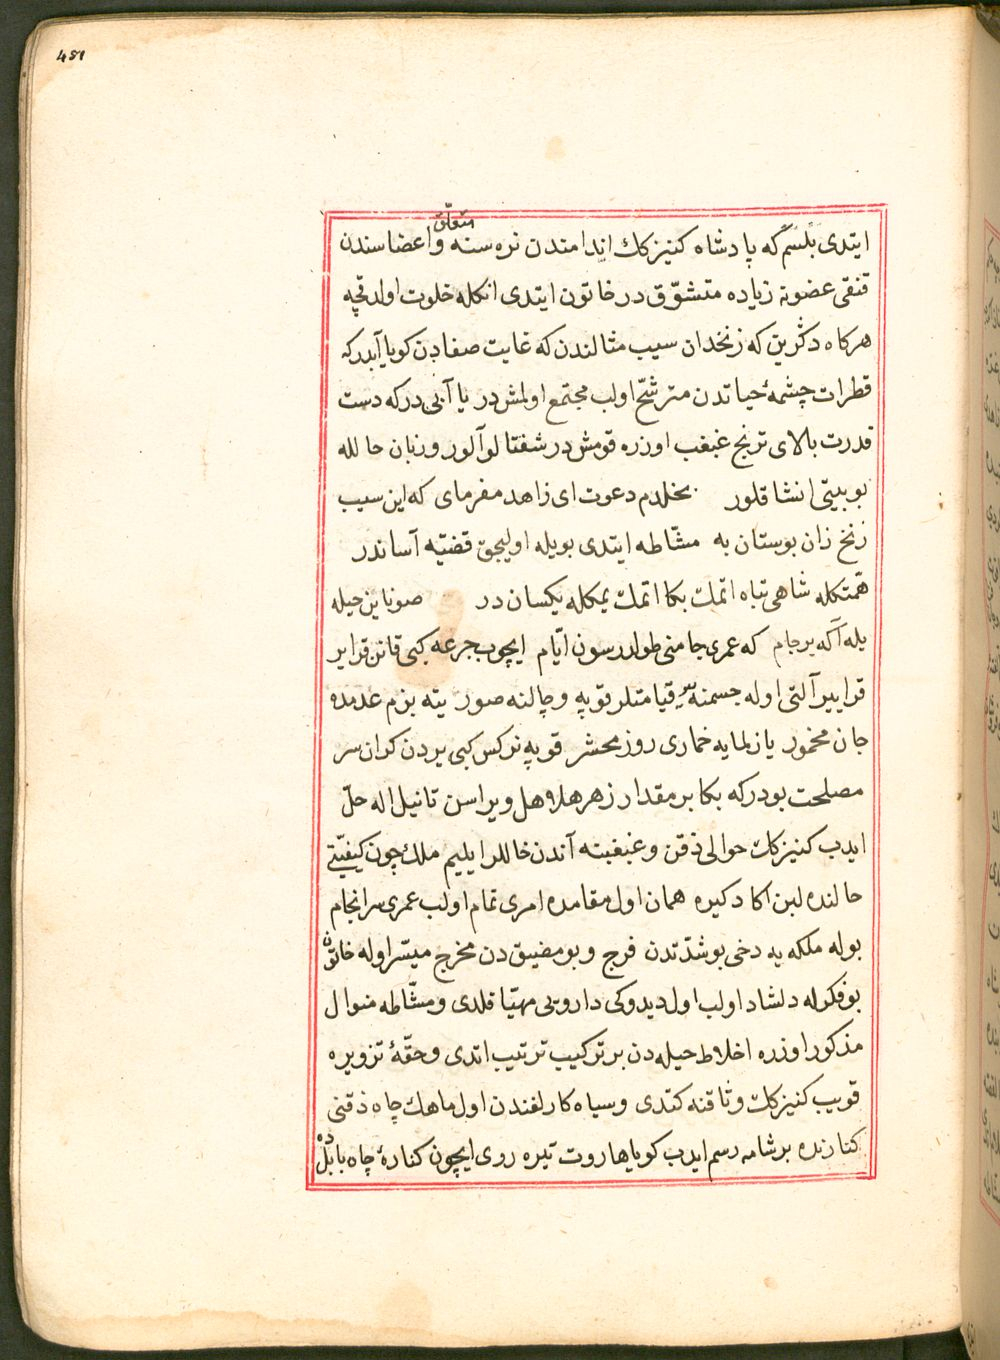 451
ایتدی بلسم که پادشاه کنیزکك اندامتدن نره سنه و اعضاسندن
متعلق
قنقی عضونه زیاده متشوّق در خاتون ایتدی انکله خلوت اولدقچه
هرکاه دکرین که زنخدان سیب مثالندن که غایت صفادن کویا آبدرکه
قطرات چشمهٔ حیاتدن مترشّح اولب مجتمع اولمش در یا آبی درکه دست
قدرت بالای ترنج غبغب اوزره قومش در شفتالو آلور و زبان حالله
بو بیتی انشا قلور بخلدم دعوت ای زاهد مفرمای که این سیب
زنخ زان بوستان به مشّاطه ایتدی بویله اولیجق قضیّه آساندر
همّتکله شاهی تباه اتمك بکا اتمك یمکله یکسان در صونا ین حیله
یله آکه بر جام که عمری جامنی طولدرسون ایّام ایچوب جرعه کبی قانن قرا یر
قرا ییر آلتی اوله جسمنه یر قیامتلر قوپه و چالنه صور یته بزم عدمده
جان مخمور یازلمایه خماری روز محشر قوپه نرکس کبی یردن کران سر
مصلحت بودرکه بکا بر مقدار زهر هلاهل ویراسن تا نیل اله حلّ
ایدب کنیزكك حوالی ذقن و غبغبنه آندن خاللر ایلیم ملك چون کیفیّتی
حالنده لبن اکا دکیره همان اول مقامده امری تمام اولب عمری سرانجام
بوله ملکه یه دخی بو شدّتدن فرج و بو مضیق دن مخرج میسّر اوله خاتون
بو فکرله دلشاد اولب اول دیدوکی دارویی مهیّا قلدی و مشّاطه منوال
مذکور اوزره اخلاط حیله دن بر ترکیب ترتیب اتدی و حقّهٔ تزویره
قویب کنیزكك وثاقنه کتدی و سیاه کارلغندن اول ماهك چاه ذقنی
کنارنده بر شامه رسم ایدب کویا هاروت تیره روی ایچون کنارهٔ چاه بابلده